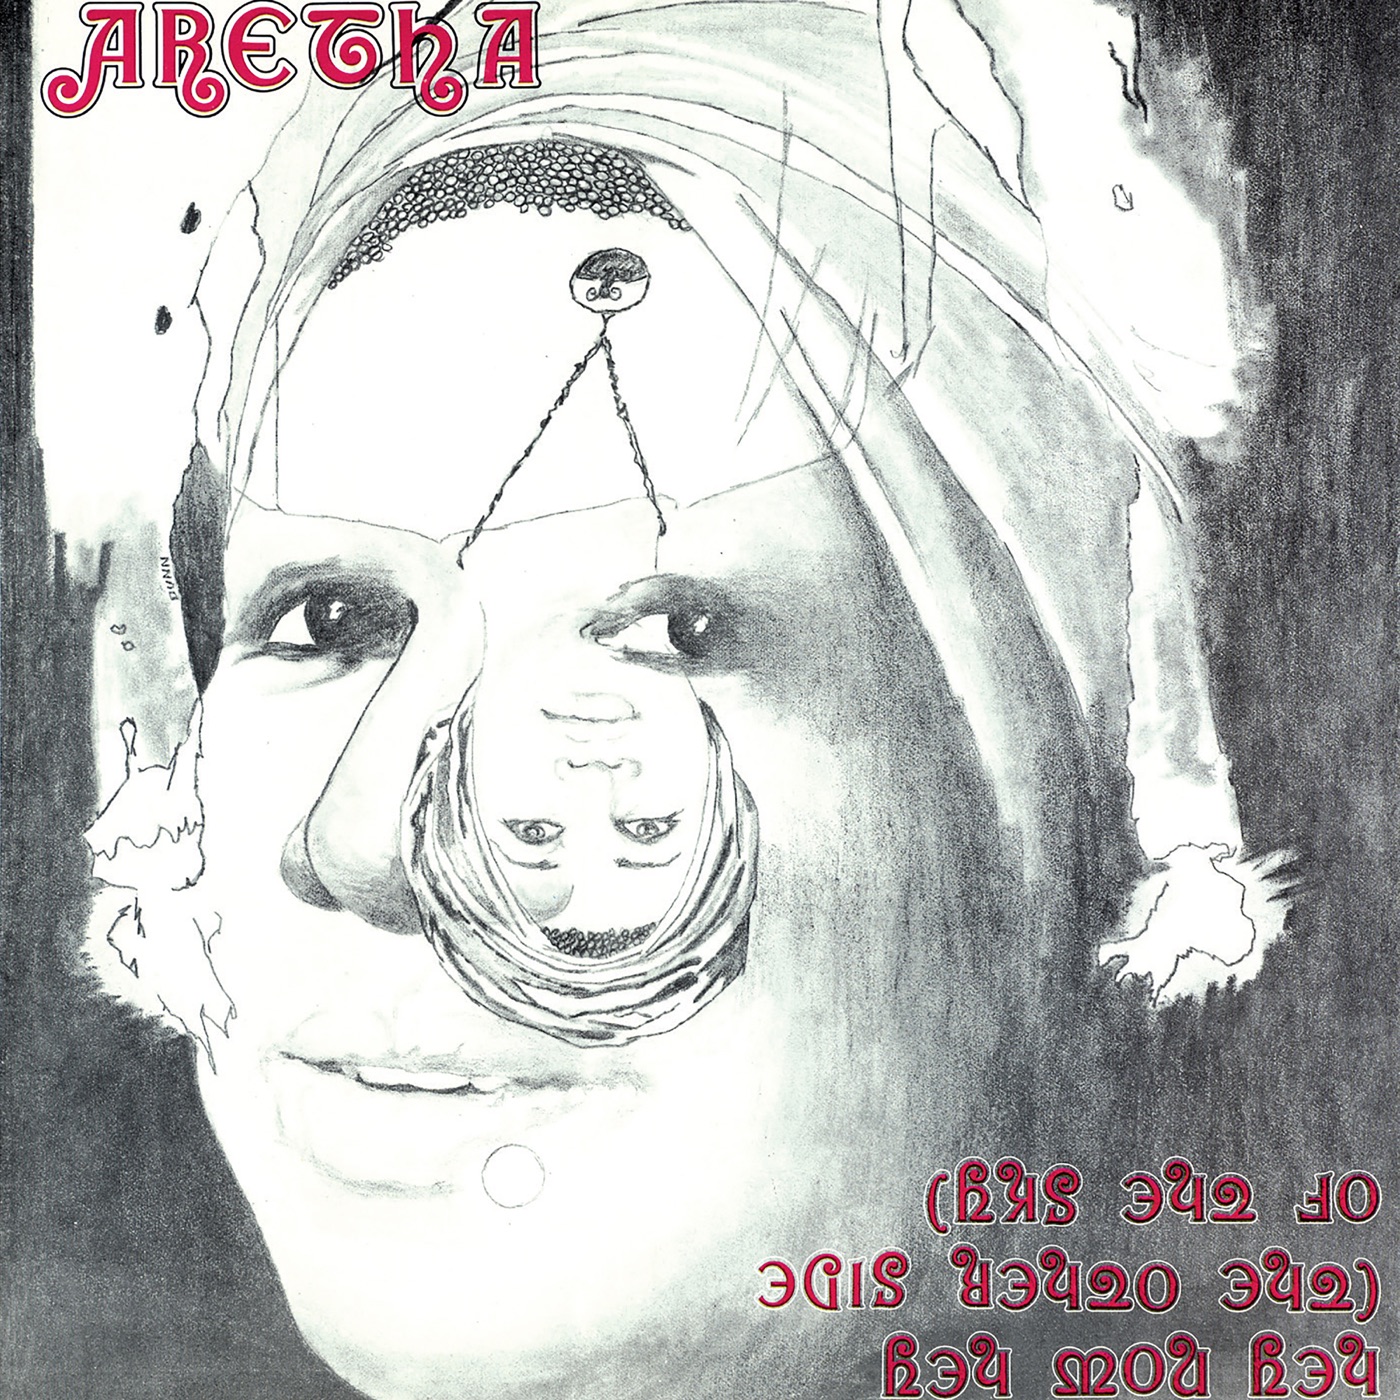 ARETHA
HEY NOW HEY
(THE OTHER SIDE
OF THE SKY)
DUNN